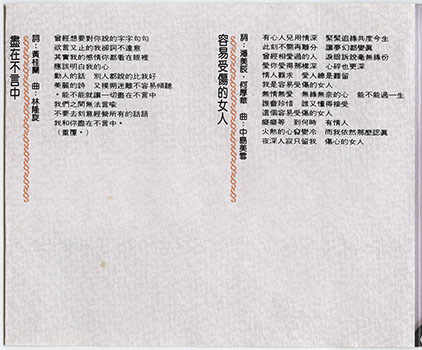 盡在不言中
詞：黃桂蘭　曲：林隆旋
曾經想要對你說的字字句句
欲言又止的我卻詞不達意
其實我的感情你都看在眼裡
應該明白我的心
動人的話　別人都說的比我好
美麗的詩　又撲朔迷離不容易傾聽
*能不能就讓一切盡在不言中
我們之間無法言喻
不要去刻意經營所有的話語
我和你盡在不言中*
（重覆*）
容易受傷的女人
詞：潘美辰・何厚華　曲：中島美雪
有心人兒用情深　緊緊追緣共度今生
此刻不願再離分　讓夢幻都變真
曾經相愛過的人　淚眼訴說無緣份
愛你愛得那樣深　心碎也更深
情人難求　愛人總是難留
我是容易受傷的女人
無情無愛　無緣無奈的心　能不能過一生
誰會珍惜　誰又懂得接受
這個容易受傷的女人
癡癡等　到何時　有情人
火熱的心會變冷　而我依然那麼認真
夜深人寂只留我　傷心的女人